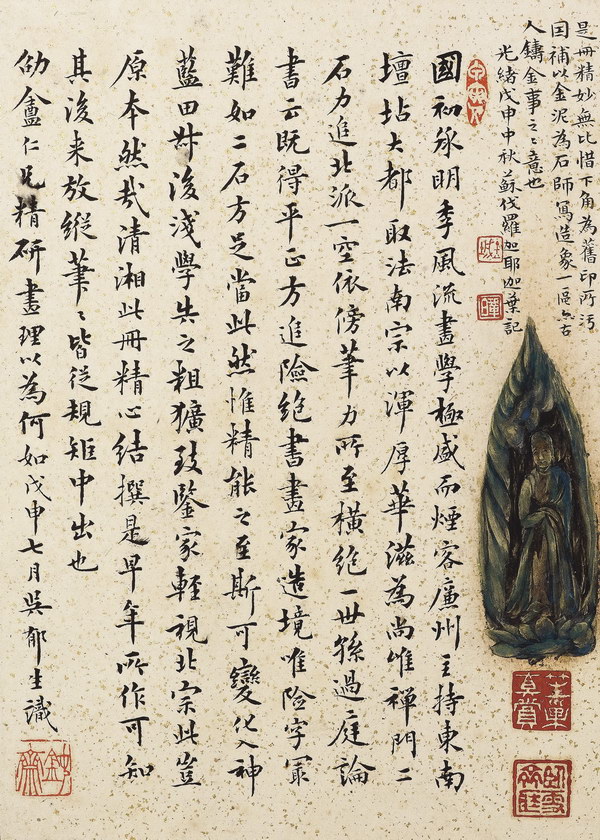 是冊精妙無比惜下角為舊印所污
囙補以金泥為石師寫造象一區亦古
人鑄金事之〻意也
光緒戊申中秋蘇伐羅迦耶迦葉記
國初承明季風流畫學極盛而煙容廉州主持東南
壇坫大都取法南宗以渾厚華滋為尚惟禪門二
石力進北派一空依傍筆力所至橫絕一世孫過庭論
書云既得平正方進險絕書畫家造境唯險字冣
難如二石方足當此然惟精能之至斯可變化入神
藍田叔後淺學失之粗獷致鑒家輕視北宗此豈
原本然哉清湘此冊精心結撰是早年所作可知
其後来放縱筆〻皆從規矩中出也
劬盦仁兄精研畫理以為何如戊申七月吳郁生識
鈍齋
真賞